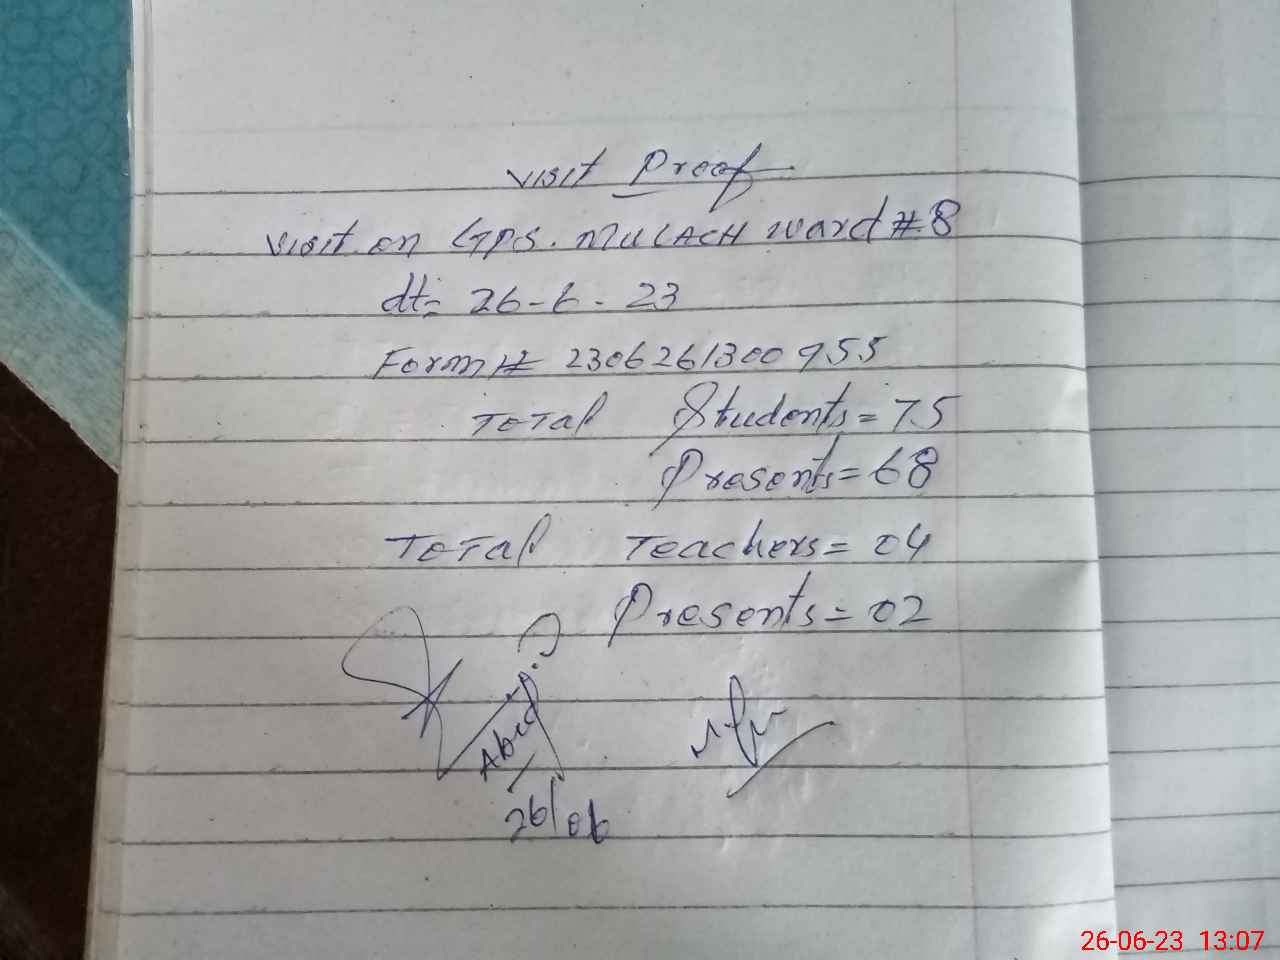 Visit Proof
Visit on GPS. MULACH ward # 8
dt= 26-6-23
Form # 2306261300955
Total Students = 75
Presents = 68
Total Teachers = 04
Presents = 02
Abid
26/06
26-06-23 13:07